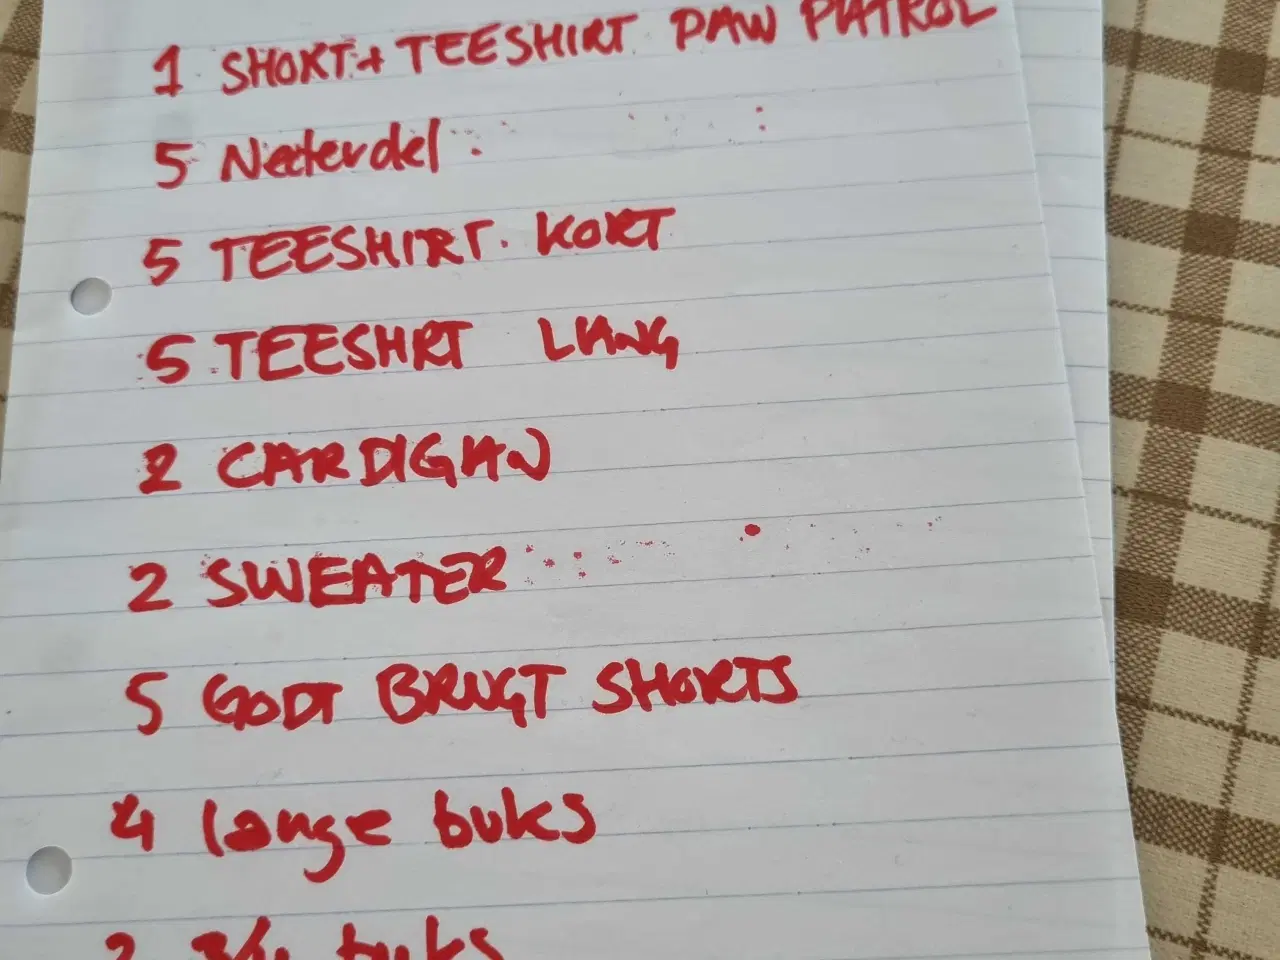 1 SHORT + TEESHIRT PAW PATROL
5 Nederdel
5 TEESHIRT. KORT
5 TEESHIRT LANG
2 CARDIGAN
2 SWEATER
5 GODT BRUGT SHORTS
4 lange buks
2 3/4 buks